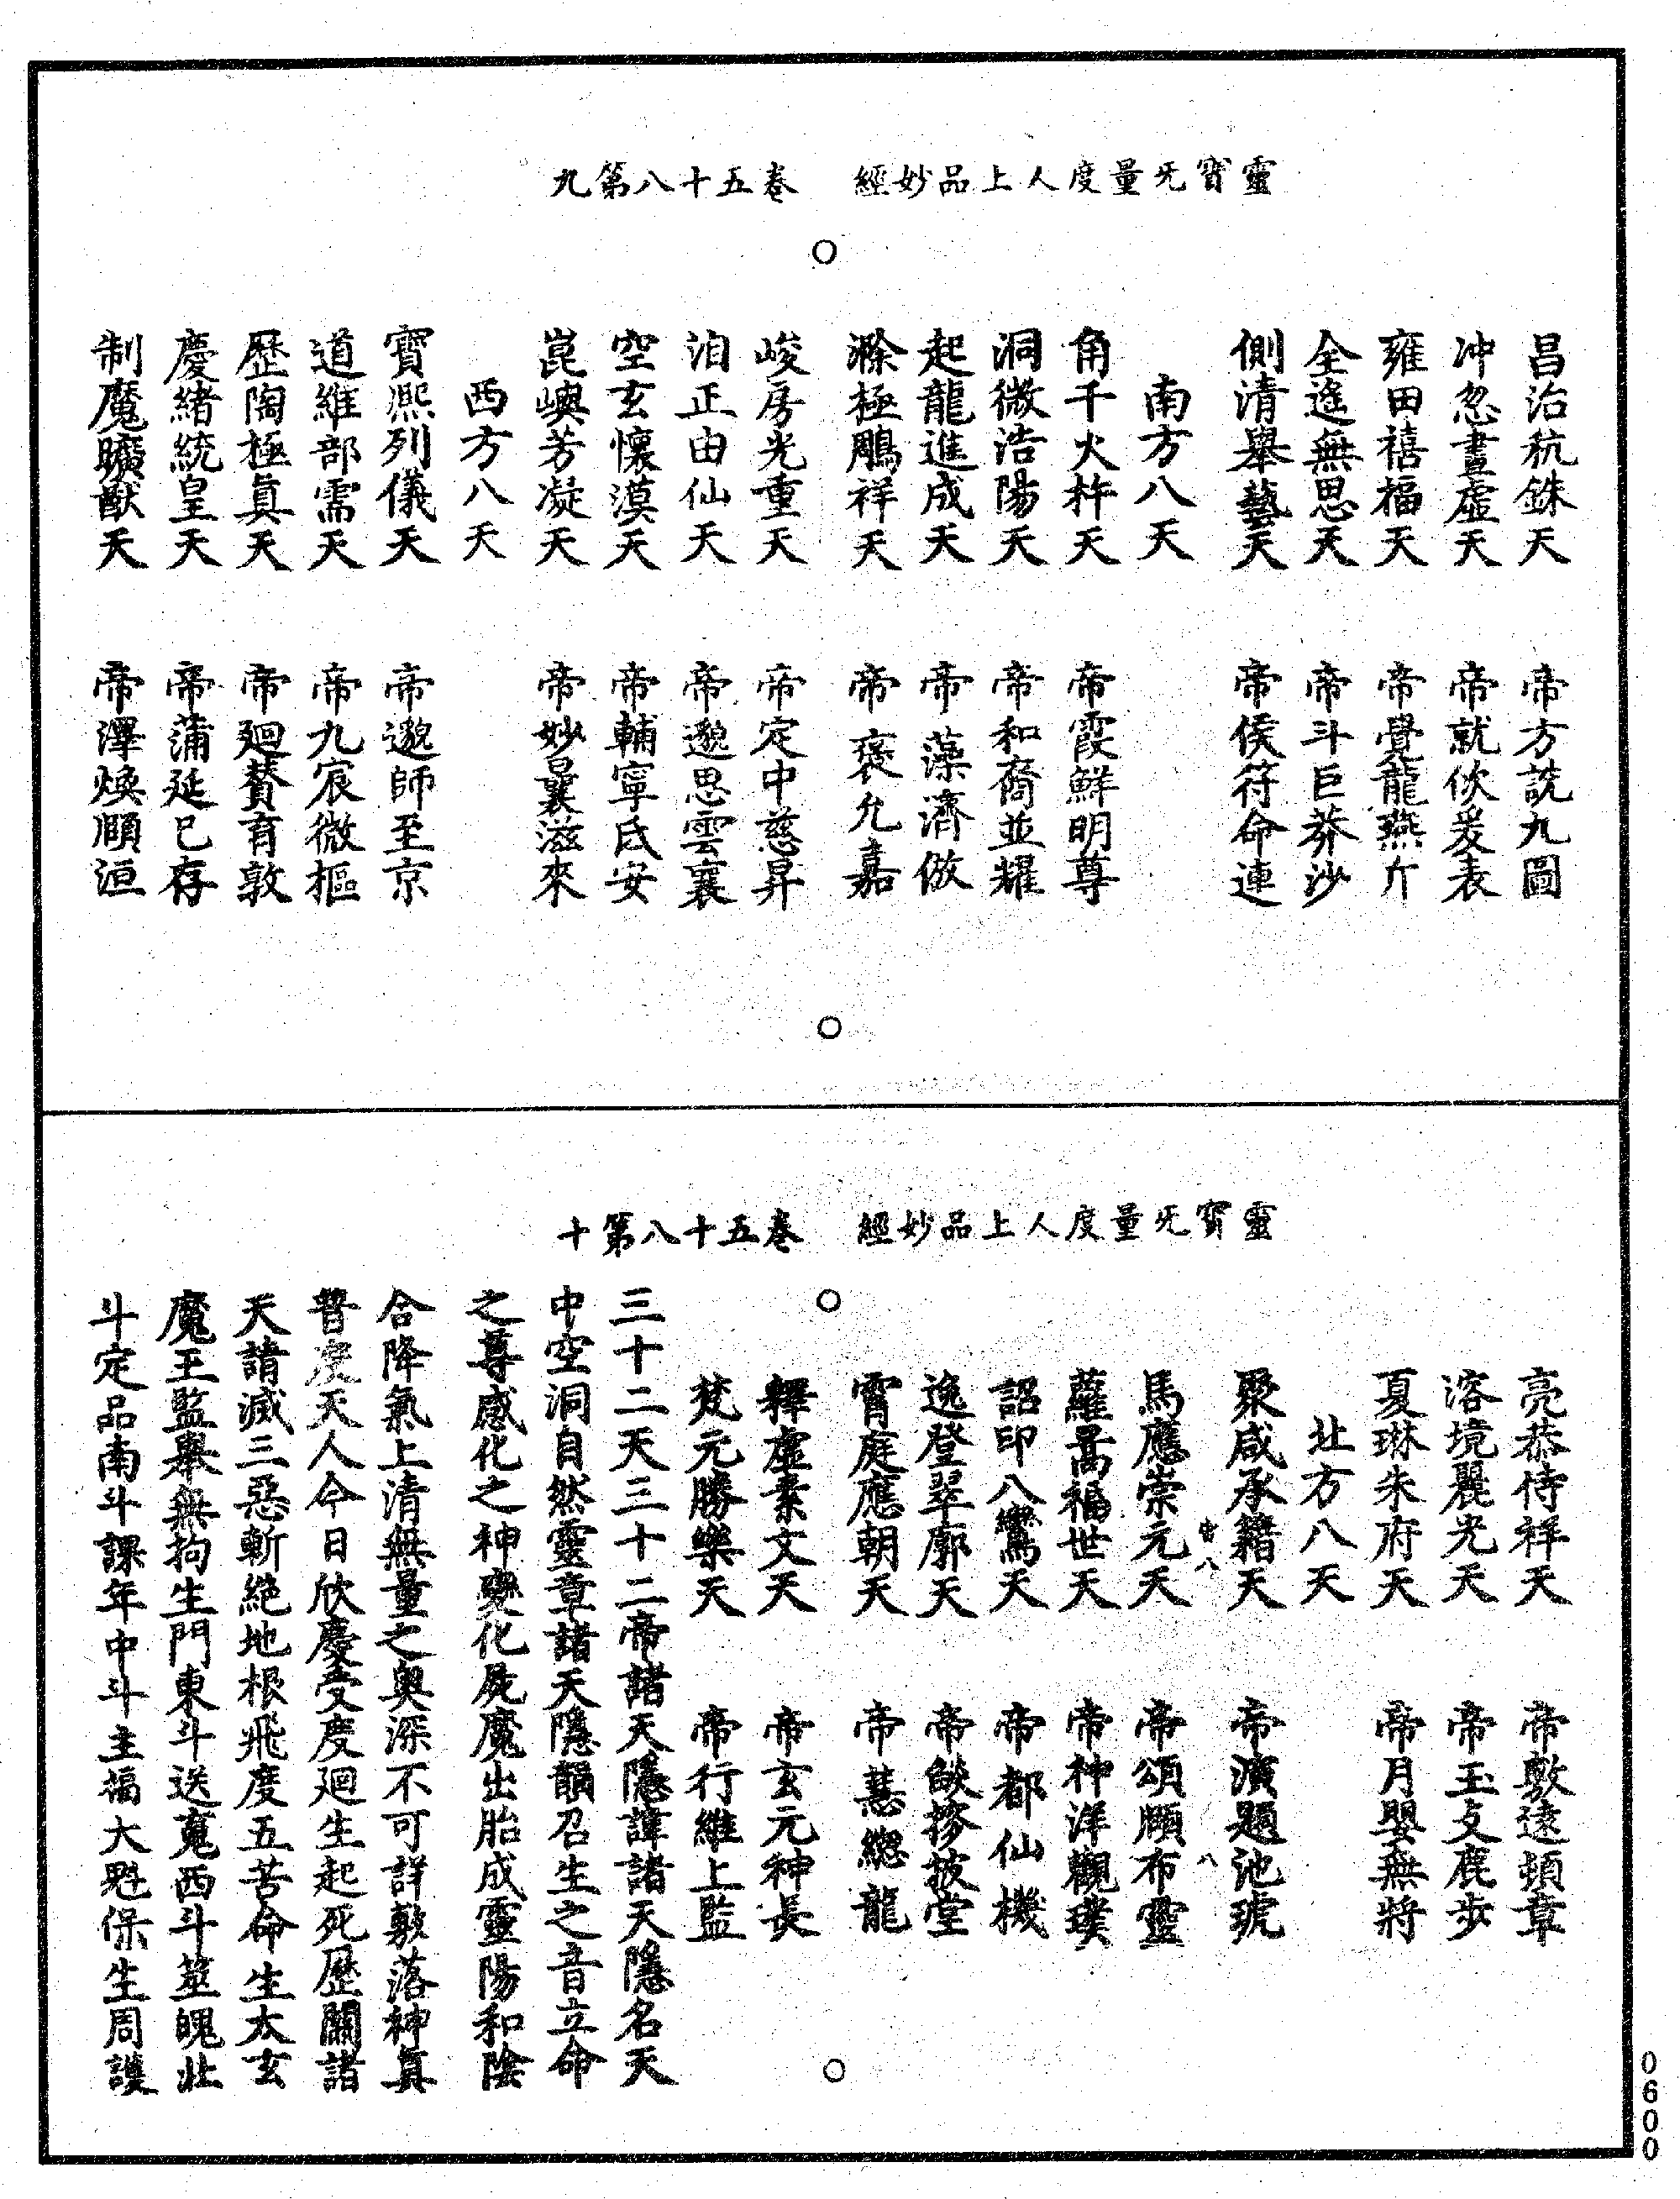 靈寶无量度人上品妙經　卷五十八第九
昌治秔銖天　帝方説九圖
冲忽晝虛天　帝就佽爰表
雍田禧福天　帝覺龍燕丌
全遙無思天　帝斗巨莽沙
側清舉藝天　帝侯符命連
南方八天
角千火杵天　帝霞鮮明尊
洞微浩陽天　帝和裔並耀
起龍進成天　帝藻濟倣
滁極鵰祥天　帝褒允嘉
峻房光重天　帝定中慈昇
洎正由仙天　帝邈思雲襄
空玄懷漠天　帝輔寧氏安
崑嶼芳凝天　帝妙曩滋來
西方八天
寶熙列儀天　帝邈師至京
道維部需天　帝九宸微樞
歷陶極真天　帝廻贊育敦
慶緒統皇天　帝蒲延巳存
制魔曠猷天　帝澤煥順洹
靈寶无量度人上品妙經　卷五十八第十
亮恭侍祥天　帝敷遠頻章
溶境麗光天　帝玉攴鹿步
夏琳朱府天　帝月嬰無將
北方八天
聚咸承籍天　帝演題池琥
馬應崇元天　帝頌順布靈
蘿暠福世天　帝神洋觀璞
詔印八鸞天　帝都仙機
逸登翠廓天　帝燄摻披堂
霄庭應朝天　帝慧總龍
釋虛素文天　帝玄元神長
梵元勝樂天　帝行維上監
三十二天三十二帝諸天隱諱諸天隱名天
中空洞自然靈章諸天隱韻召生之音立命
之尊感化之神變化屍魔出胎成靈陽和陰
合降氣上清無量之奧深不可詳敷落神真
普度天人今日欣慶受度廻生起死歷關諸
天請滅三惡斬絕地根飛度五苦命生太玄
魔王監舉無拘生門東斗送䰟西斗筮魄北
斗定品南斗課年中斗主福大魁保生周護
0600